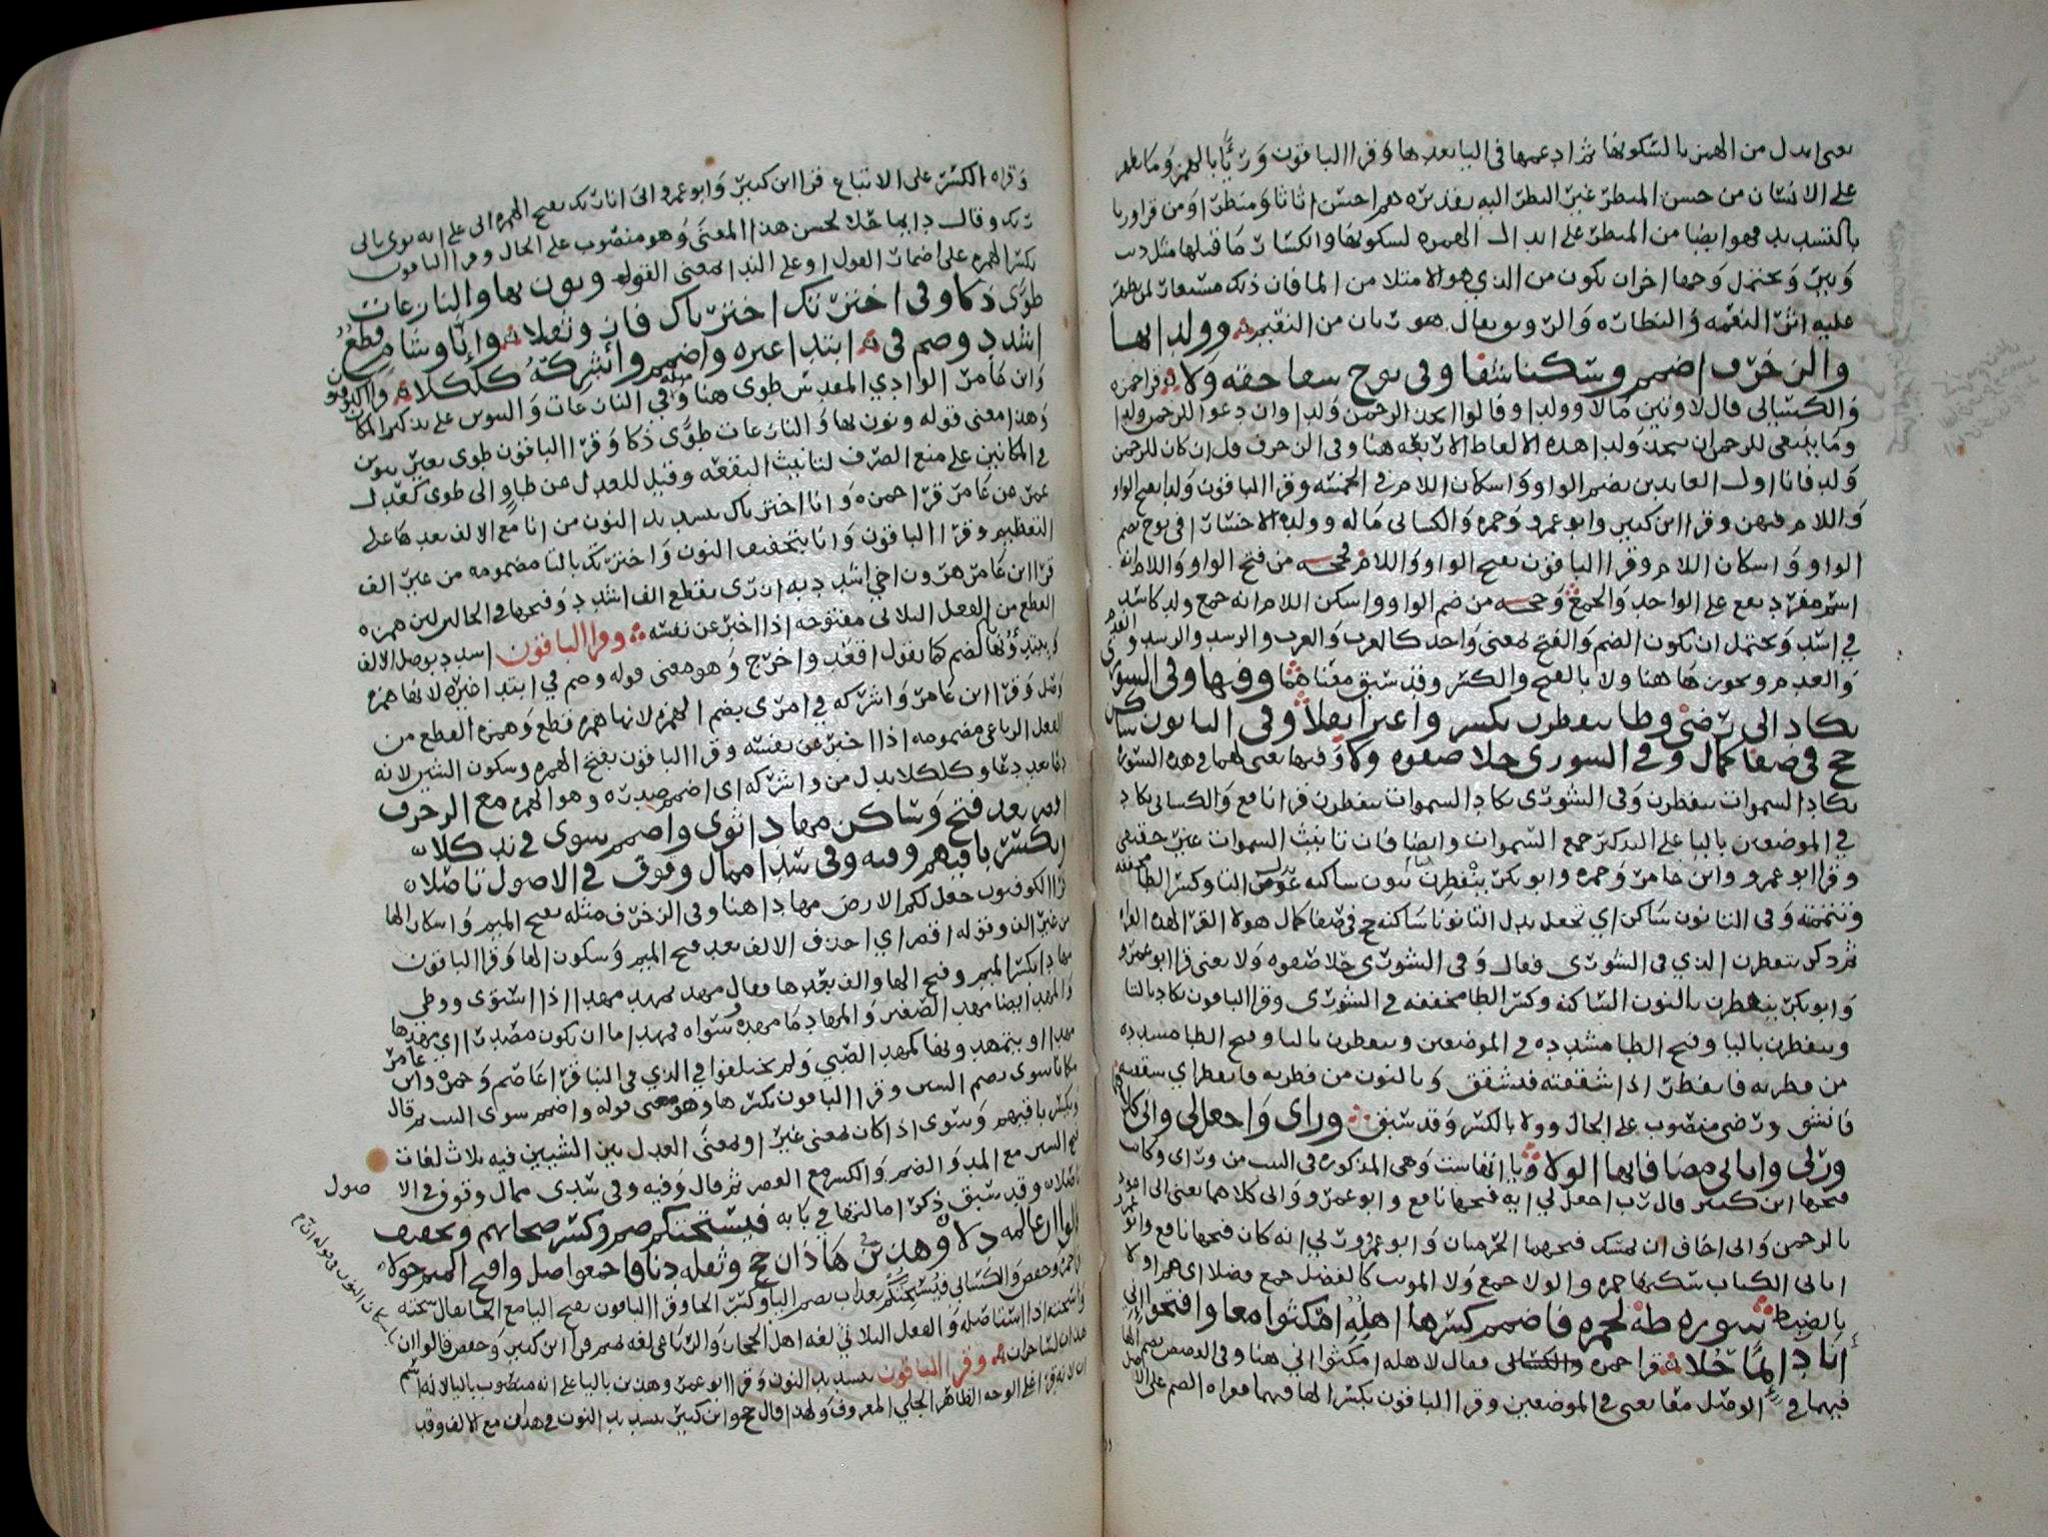 يعني ابدل من الهمز يا لسكونها ثم ادغمها في اليا بعدها وقرا الباقون وريا بالهمز وما يظهر
على الانسان من حسن المنظر غير النظر اليه تقديره هم احسن اثاثا ومنظرا ومن قرا وريا
بالتشديد فهو ايضا من المنظر على ابدال الهمزه لسكونها وانكسار ما قبلها مثل ديب
وبير ويحتمل وجها اخر ان يكون من الذي هو الامتلا من الما فان ذلك
عليه اثر النعمه والنظاره والري ويقال هو ريان من النعيم وولدا بها
والزخرف اضمم وسكنا شفا وفي نوح شفا حقه ولا قرا حمزه
والكسائي قال لاوتين مالا وولدا وقالوا اتخذ الرحمن ولدا وان دعوا للرحمن ولدا
وما ينبغي للرحمن ان يتخذ ولدا هذه الالفاظ الاربعه هنا وفي الزخرف قل ان كان للرحمن
ولد فانا اول العابدين بضم الواو واسكان اللام في الخمسه وقرا الباقون ولدا بفتح الواو
واللام فيهن وقرا ابن كثير وابو عمرو وحمزه والكسائي ماله وولده الا خسارا في نوح بضم
الواو واسكان اللام وقرا الباقون بفتح الواو واللام فحجه من فتح الواو واللام انه
اسم مفرد يقع على الواحد والجمع وحجه من ضم الواو واسكن اللام انه جمع ولد كاسد
في اسد ويحتمل ان يكون الضم والفتح بمعنى واحد كالعرب والعرب والرشد والرشد
والعدم ويحون هاهنا ولا بالفتح والكسر وقد سبق معناهما وفيها وفي الشورى
يكاد اتى رضى وطا يتفطرن يكسر وا غير اثقلا وفي التا نون ساكن
حج في صفا كمال وفي الشورى حلا صفوه ولا وفيها يعني لهما في هذه السوره
تكاد السموات يتفطرن وفي الشورى يكاد السموات يتفطرن قرا نافع والكسائي يكاد
في الموضعين باليا على التذكير جمع السموات وايضا فان تانيث السموات غير حقيقي
وقرا ابو عمرو وابن عامر وحمزه وابو بكر ينفطرن بنون ساكنه عوض التا وكسر الطا مخففه
وتتمته وفي التا نون ساكن اي تجعل بدل التا نونا ساكنه حج في صفا كمال هولا القرا لهذه القراه
ثم ذكر يتفطرن الذي في الشورى فقال وفي الشورى حلا صفوه ولا يعني قرا ابو عمرو
وابو بكر ينفطرن بالنون الساكنه وكسر الطا مخففه في الشورى وقرا الباقون تكاد بالتا
ويتفطرن باليا وفتح الطا مشدده في الموضعين ويتفطرن باليا وفتح الطا مشدده
من فطرته فانفطر اذا شققته فتشقق وبالنون من فطرته فانفطر اي شققته
فانشق ورضى منصوب على الحال وولا بالكسر وقد سبق وراي واجعل لي واني كلاهما
وربي واتاني مضافاتها الولا يا اتها ست وهي المذكوره في البيت من وراي وكانت
فتحها ابن كثير قال رب اجعل لي ايه فتحها نافع وابو عمرو واني كلاهما يعني اني اعوذ
بالرحمن واني اخاف ان يمسك فتحهما الحرميان وابو عمرو وربي انه كان فتحها نافع وابو عمرو
اتاني الكتاب سكنها حمزه والولا جمع ولا المونث كالفضل جمع فضلا
بالضبط سوره طه لحمزه فاضمم كسر ها اهله امكثوا معا وافتحوا اني
انا دائما حلا قرا حمزه والكسائي فقال لاهله امكثوا اني هنا وفي القصص بضم الها
فيهما في الوصل معا يعني في الموضعين وقرا الباقون بكسر الها فيهما فقراه الضم على الاصل
وقراه الكسر على الاتباع قرا ابن كثير وابو عمرو اني انا ربك بفتح الهمزه اني على انه نودي باني
ربك وقال دائما حلا لحسن هذا المعنى وهو منصوب على الحال وقرا الباقون
بكسر الهمزه على اضمار القول او على الندا بمعنى القول ونون بها والنازعات
طوى ذكا وفي اخترتك اخترناك فاز وثقلا وانا وشام قطع
اشدد وضم في ابتدا غيره واضمم واشركه كلكلا قرا الكوفيون
وابن عامر الوادي المقدس طوى هنا وفي النازعات والتنوين على تذكير المكان
وهذا معنى قوله ونون بها والنازعات طوى ذكا وقرا الباقون طوى بغير تنوين
في المكانين على منع الصرف لتانيث البقعه وقيل للعدل عن طاو الى طوى كعدل
عمر عن عامر قرا حمزه وانا اخترناك بتشديد النون من انا مع الالف بعدها على
التعظيم وقرا الباقون وانا بتخفيف النون واخترتك بالتا مضمومه من غير الف
قرا ابن عامر هرون اخي اشدد به ازري بقطع الف اشدد وفتحها في الحالين لان همزه
القطع من الفعل الثلاثي مفتوحه اذا اخبر عن نفسه وقرا الباقون اشدد بوصل الالف
ويبتدؤنها بالضم كما يقول اقعد واخرج وهو معنى قوله وضم في ابتدا غيره لانها همزه
وصل وقرا ابن عامر واشركه في امري بضم الهمزه لانها همزه قطع وهمزه القطع من
الفعل الرباعي مضمومه اذا اخبر عن نفسه وقرا الباقون بفتح الهمزه وسكون الشين لانه
دعا بعد دعا وكلكلا بدل من واشركه اي اضمم صدره وهو الهمزه مع الزخرف
اقصر بعد فتح وساكن مهادا ثوى واضمم سوى في ند كلا
ويكسر باقيهم وفيه وفي سدى ممال وقوف في الاصول تاصلا
قرا الكوفيون جعل لكم الارض مهادا هنا وفي الزخرف مثله بفتح الميم واسكان الها
من غير الف وقوله اقصر اي احذف الالف بعد فتح الميم وسكون الها وقرا الباقون
مهادا بكسر الميم وفتح الها والف بعدها فقال مهد يمهد مهدا اذا استوى ووطي
والمهد ايضا مهد الصغير والمهاد ما مهد وسواه فمهدا اما ان يكون مصدرا اي مهدها
مهدا او يتمهد ونها كمهد الصبي ولم يختلفوا في الذي في النبا قرا عاصم وحمزه وابن عامر
مكانا سوى بضم السين وقرا الباقون بكسرها وهو معنى قوله واضمم سوى البيت ثم قال
ويكسر باقيهم وسوى اذا كان بمعنى غير او بمعنى العدل بين الشيين فيه ثلاث لغات
فتح السين مع المد والضم والكسر مع القصر ثم قال وفيه وفي سدى ممال وقوف في الا
صول
تاصلا وقد سبق ذكر امالتها في بابه فيسحتكم ضم وكسر صحابهم وتخفيف
قالوا ان عالمه دلا وهذين في هاذان حج وثقله دنا فاجمعوا صل وافتح الميم حولا
قرا حمزه وحفص والكسائي فيسحتكم بعذاب بضم اليا وكسر الحا وقرا الباقون بفتح اليا مع الحا يقال سحته
واسحته اذا استاصله والفعل الثلاثي لغه اهل الحجاز والرباعي لغه تميم قرا ابن كثير وحفص قالوا ان
هذان لساحران وقرا الباقون بتشديد النون وقرا ابو عمرو هذين باليا على انه منصوب باليا لانه اسم
ان لانه قرا على الوجه الظاهر الجلي المعروف ولهذا قال حج وابن كثير بتشديد النون في هذان مع الالف وقد
باسكان النون وقوله ان